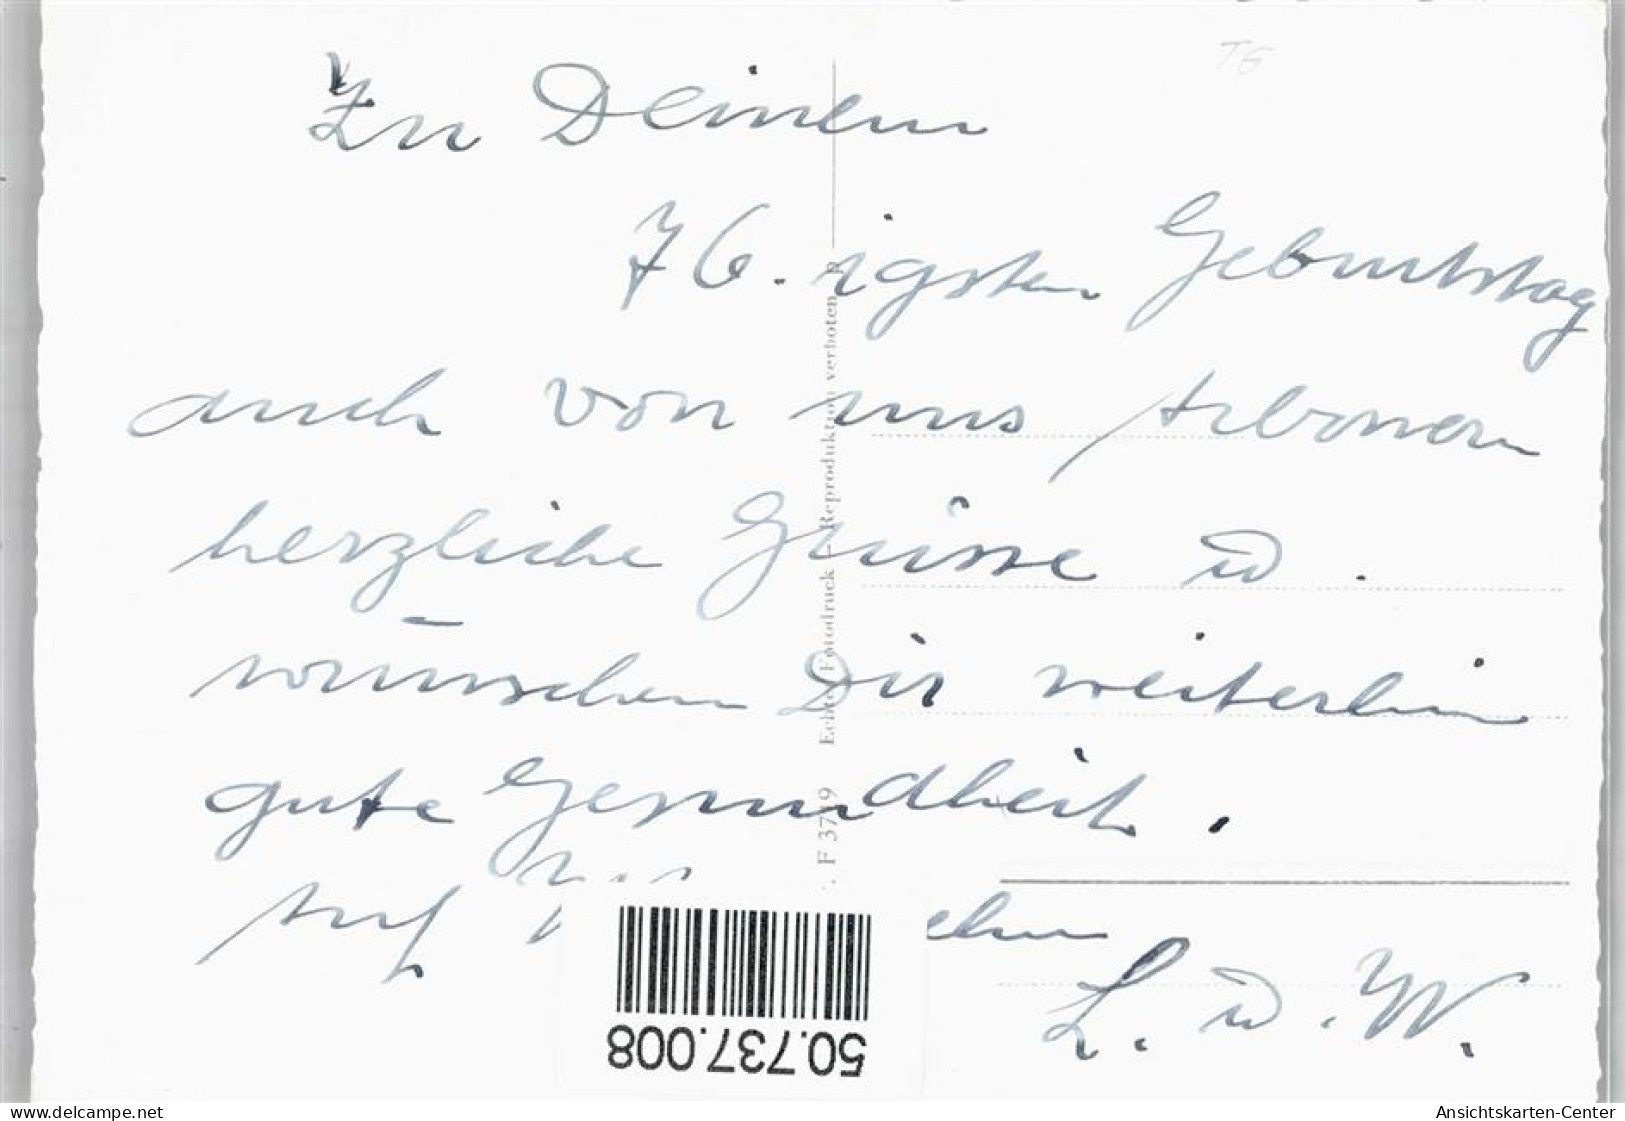 TG
Zu Deinem
76.igsten Geburtstag
auch von uns Arbonern
herzliche Grüsse u.
wünschen Dir weiterhin
gute Gesundheit.
Auf
L. u. W.
F 3719 Echter Fotodruck – Reproduktion verboten
50.737.008
www.delcampe.net
Ansichtskarten-Center